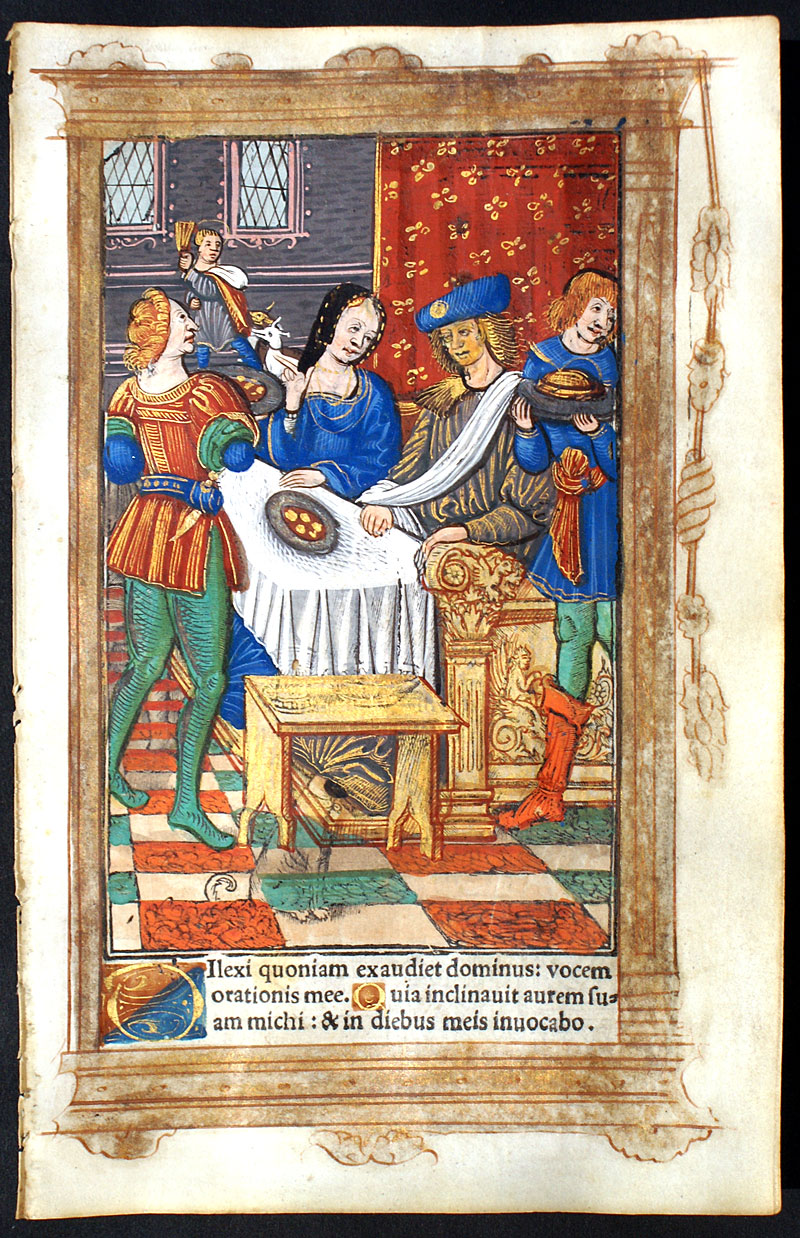 Dilexi quoniam exaudiet dominus: vocem
orationis mee. Quia inclinauit aurem su=
am michi: & in diebus meis inuocabo.